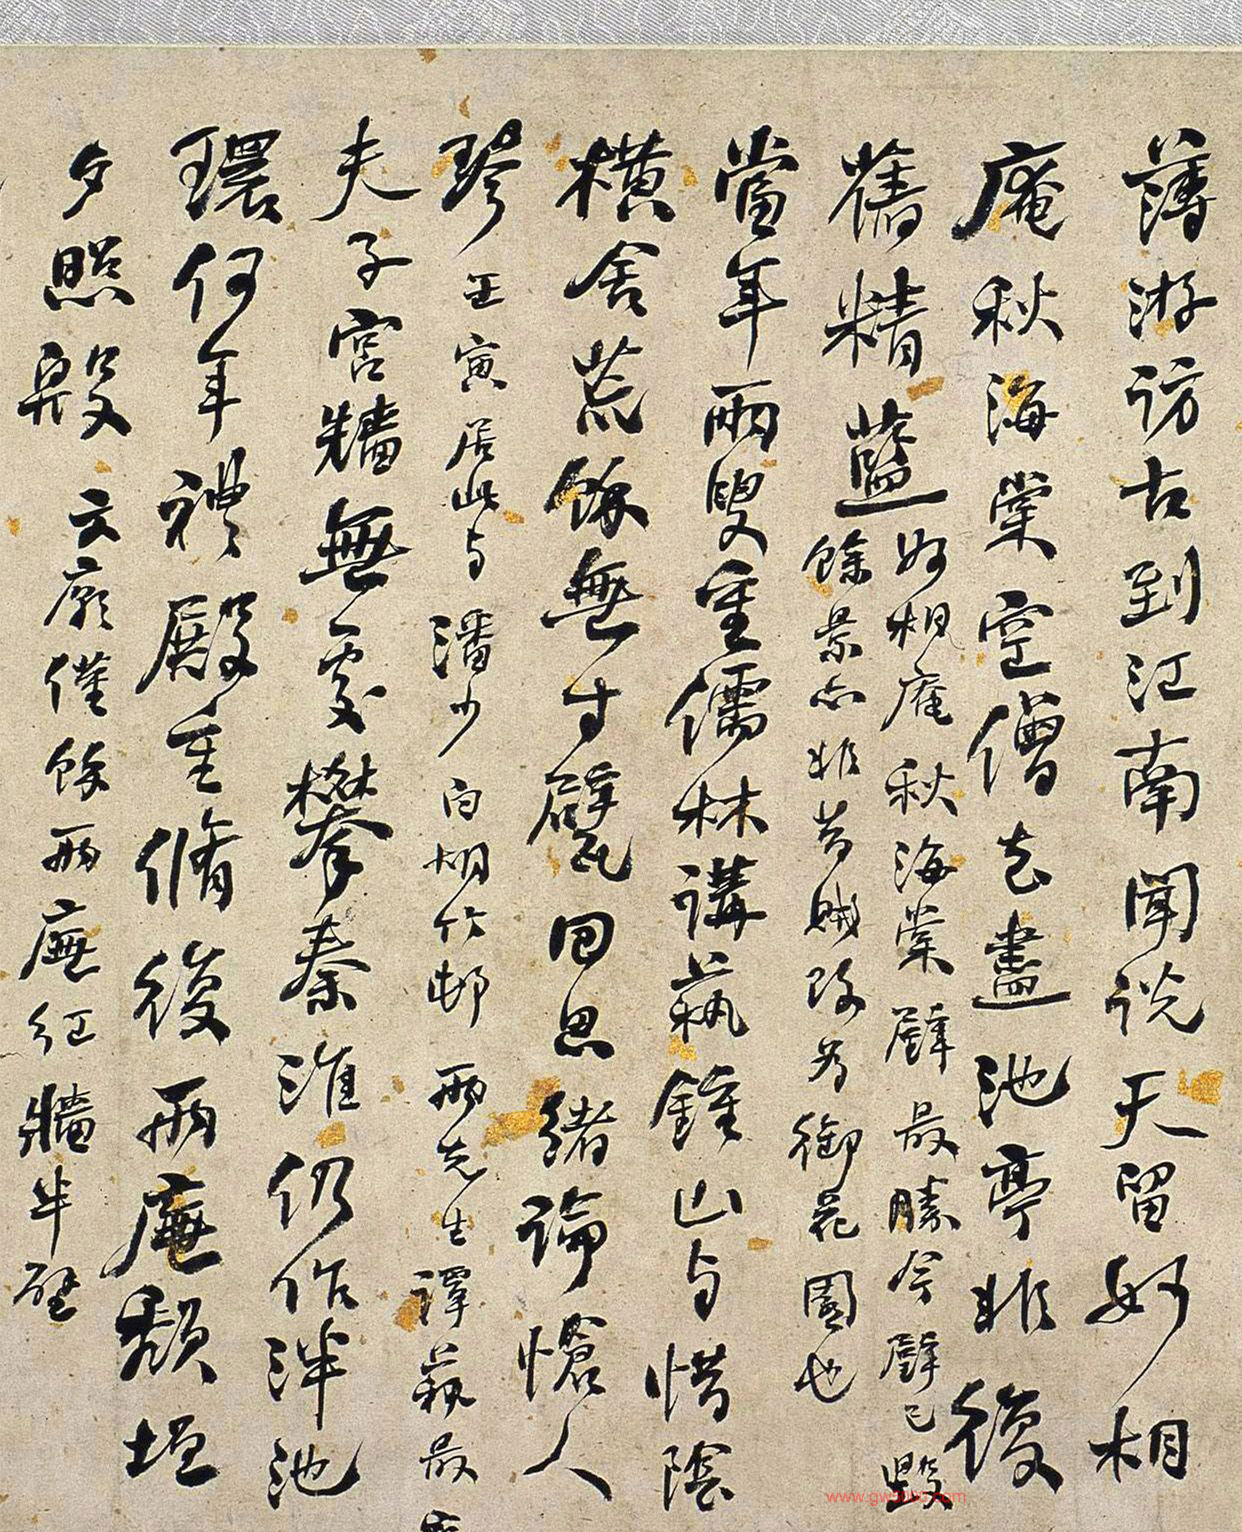 薄游訪古到江南聞說天留妙相
庵秋海棠空僧去盡池亭非復
舊精藍
妙相庵秋海棠驛最勝今驛已毀
餘景亦非昔賊改為御花園也
當年兩叟重儒林講蓺鍾山与惜陰
橫舍荒餘無寸甓回思緒論愴人
琴 壬寅居此与潘少白胡竹邨兩先生譚蓺最
夫子宮牆無處攀秦淮仍作泮池
環何年禮殿重脩復兩廡頹垣
夕照殷 文廟僅餘兩廡紅牆半壁
www.gw5000.com